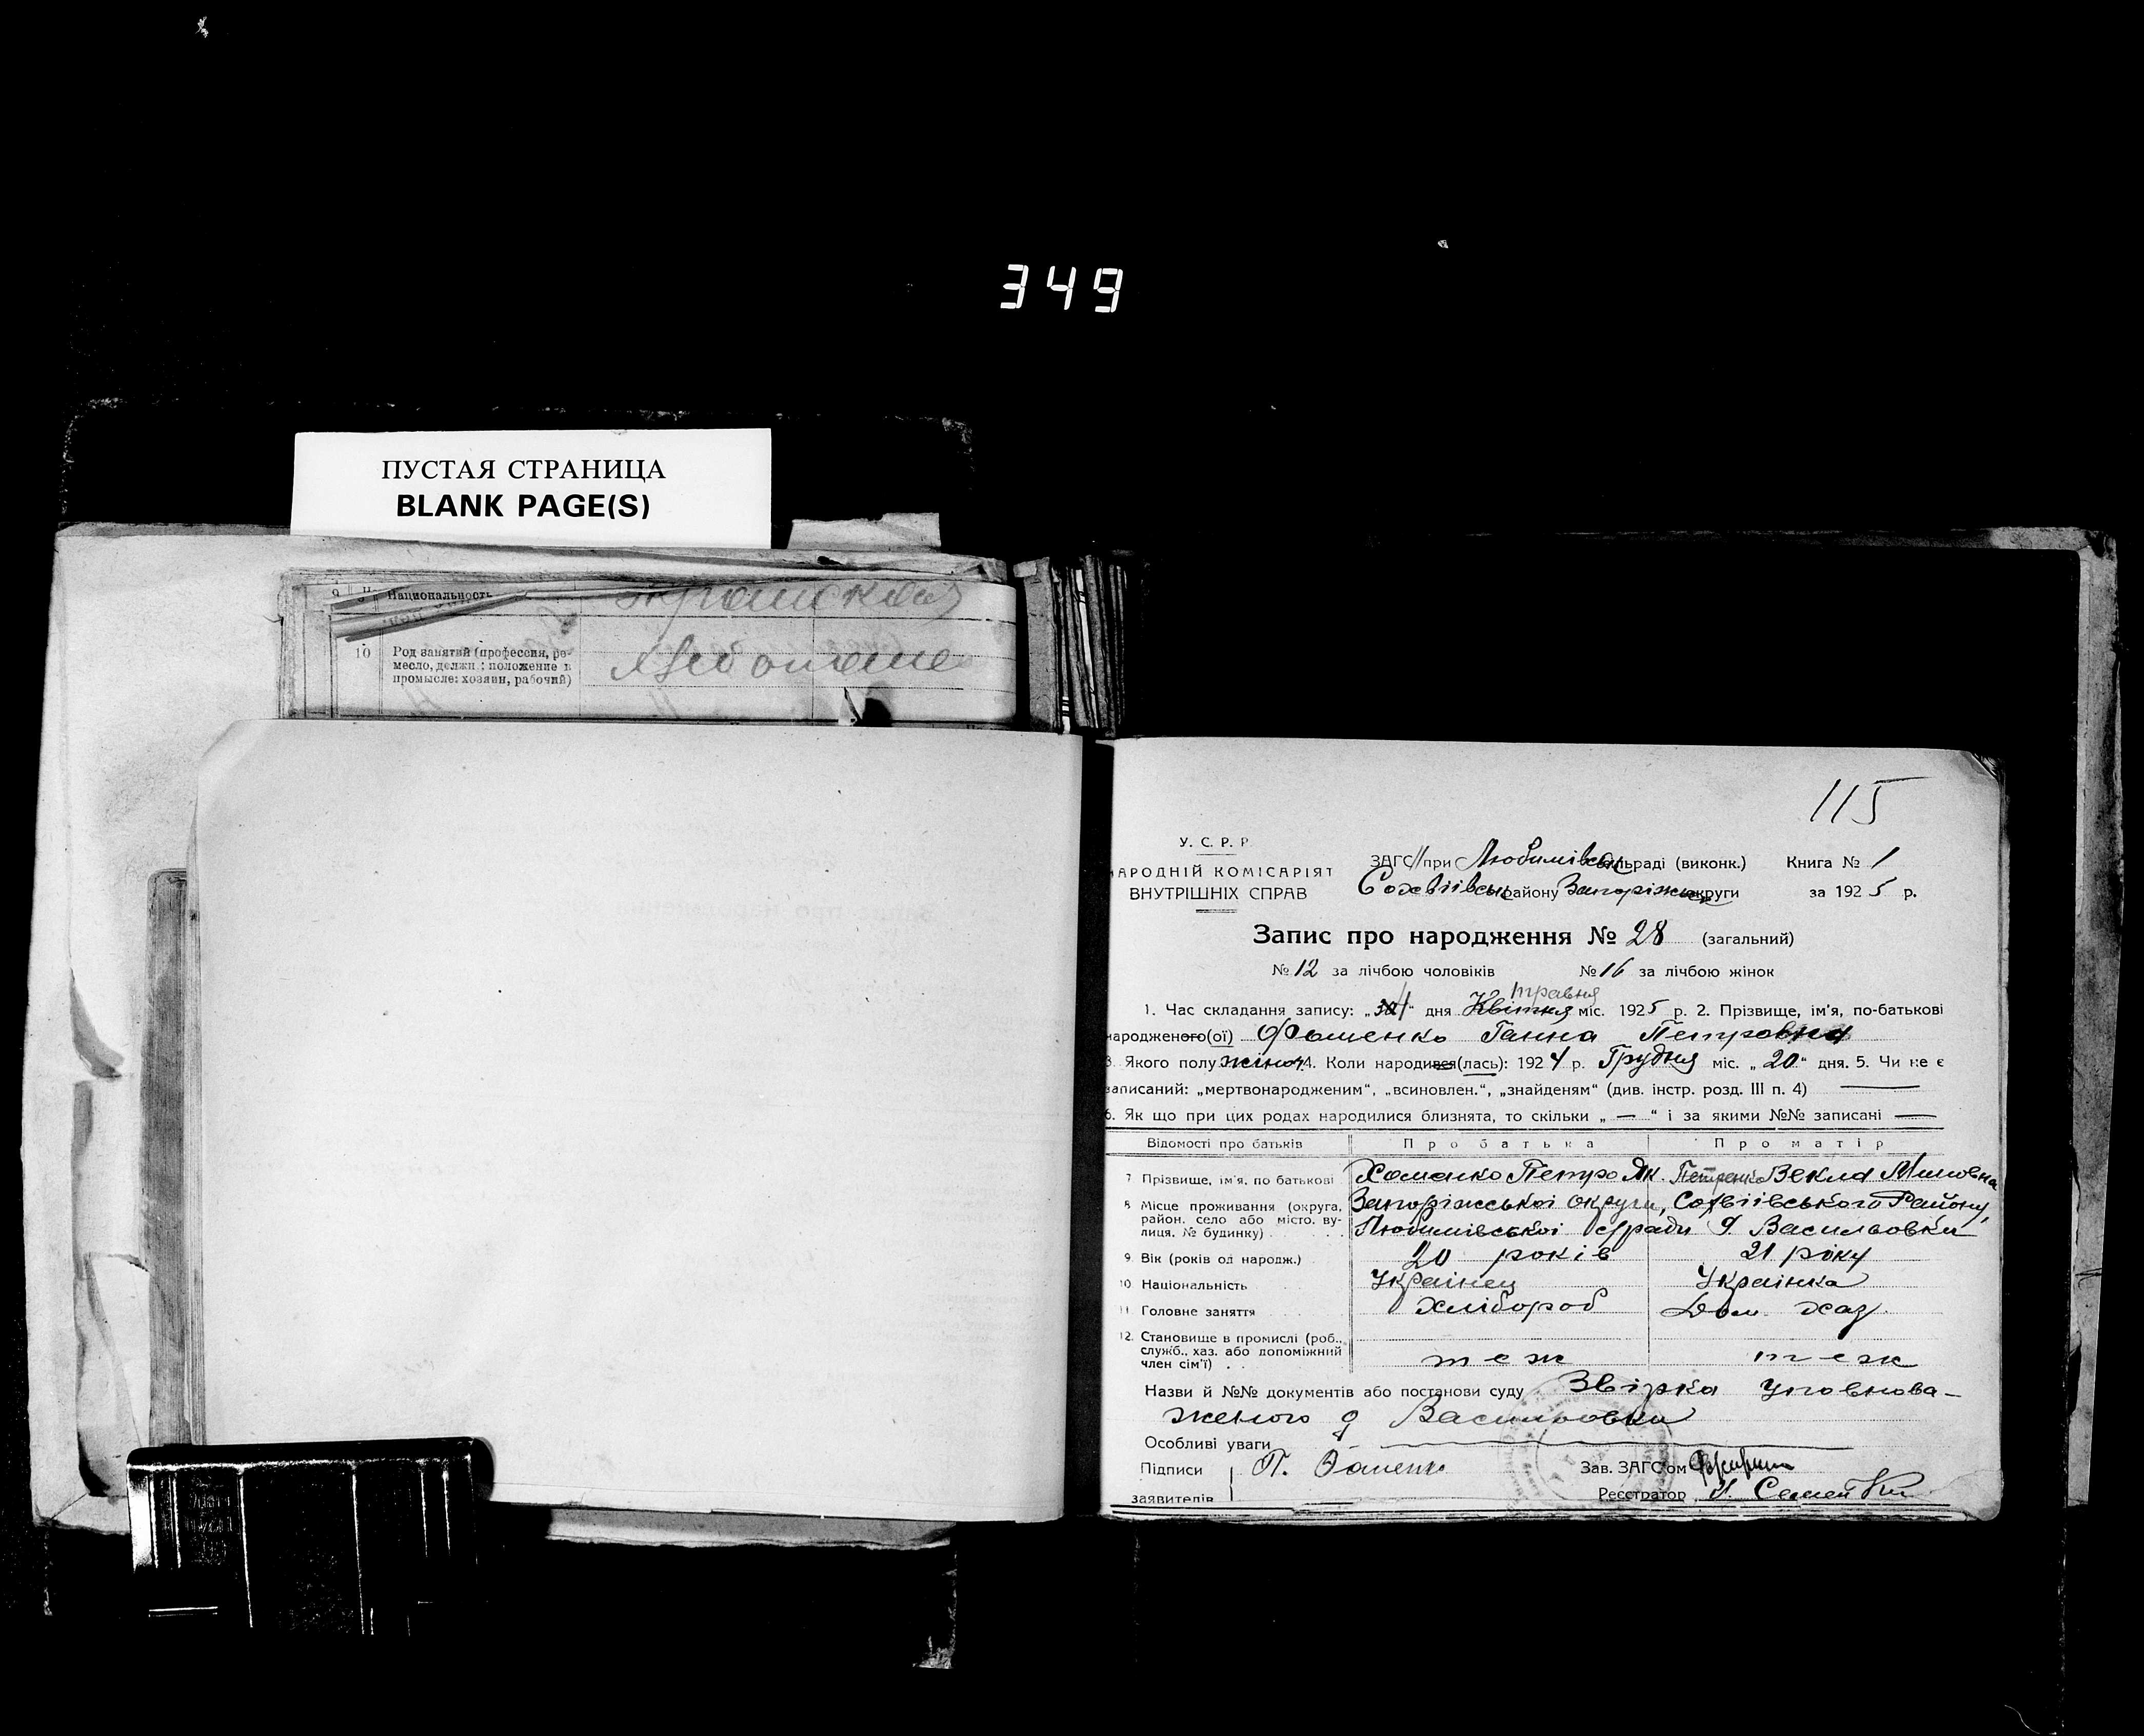 349
ПУСТАЯ СТРАНИЦА
BLANK PAGE(S)
9 Национальность
10 Род занятий (профессия, ре-
месло, должн.; положение в
промысле: хозяин, рабочий)
115
У. С. Р. Р
НАРОДНІЙ КОМІСАРІЯТ
ВНУТРІШНІХ СПРАВ
ЗАГС при Любимівськ сільраді (виконк.) Книга № 1
Софіївськ району Запоріжськ округи за 1925 р.
Запис про народження № 28 (загальний)
№ 12 за лічбою чоловіків № 16 за лічбою жінок
травня
1. Час складання запису: „ “ дня Квітня міс. 1925 р. 2. Прізвище, ім'я, по-батькові
народженого(ої) Фоменко Ганна Петровна
3. Якого полу жіноч 4. Коли народився(лась): 1924 р. Грудня міс. „20“ дня. 5. Чи не є
записаний: „мертвонародженим“, „всиновлен.“, „знайденям“ (див. інстр. розд. III п. 4) —
6. Як що при цих родах народилися близнята, то скільки „—“ і за якими №№ записані —
Відомості про батьків Про батька Про матір
7 Прізвище, ім'я, по батькові Хоменко Петро Як. Петренко Векла
8 Місце проживання (округа, район. село або місто. ву-лиця. № будинку) Запоріжської округи, Софіївського Району,
Любимівської с/ради д. Васильовки
9 Вік (років од народж.) 20 років 21 року
10 Національність Українец Українка
11 Головне заняття хлібороб Дом. хаз.
12. Становище в промислі (роб., служб., хаз. або допоміжний член сім'ї) теж теж
Назви й №№ документів або постанови суду Звірка Уповнова-
женого д Васильовки
Особливі уваги —
Підписи П. Зав. ЗАГС'ом
заявителів Реєстратор